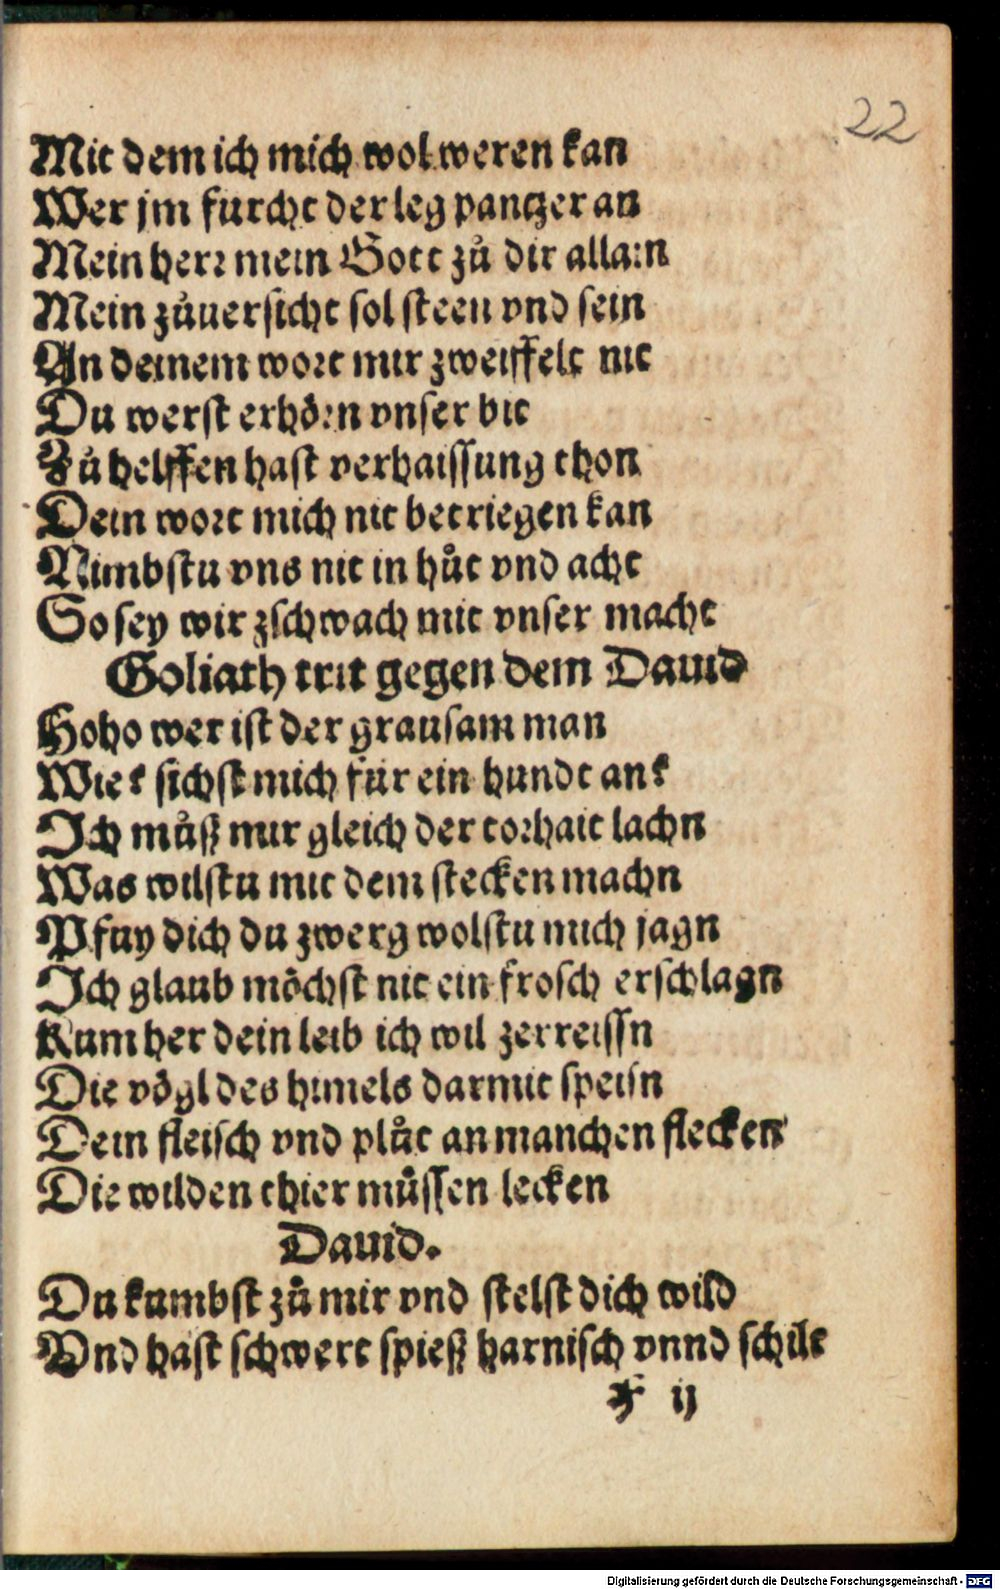 22
Mit dem ich mich wol weren kan
Wer jm furcht der leg pantzer an
Mein herr mein Gott zů dir allain
Mein zůuersicht sol steen vnd sein
An deinem wort mir zweiffelt nit
Du werst erhörn vnser bit
Zů helffen hast verhaissung thon
Dein wort mich nit betriegen kan
Nimbstu vns nit in hůt vnd acht
So sey wir zschwach mit vnser macht
Goliath trit gegen dem Dauid
Hoho wer ist der grausam man
Wie? sichst mich für ein hundt an?
Ich můß mir gleich der torhait lachn
Was wilstu mit dem stecken machn
Pfuy dich du zwerg wolstu mich jagn
Ich glaub möchst nit ein frosch erschlagn
Kum her dein leib ich wil zerreissn
Die vögl des himels darmit speisn
Dein fleisch vnd plůt an manchen flecken
Die wilden thier müssen lecken
Dauid.
Du kumbst zů mir vnd stelst dich wild
Vnd hast schwert spieß harnisch vnnd schilt
ij
Digitalisierung gefördert durch die Deutsche Forschungsgemeinschaft - DFG